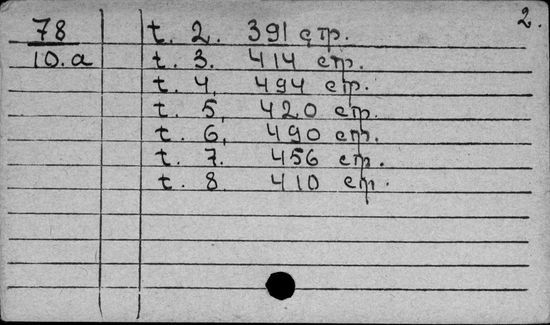 2.
78 t. 2. 391 стр.
10.a t. 3. 414 стр.
t. 4. 494 стр.
t. 5. 420 стр.
t. 6. 490 стр.
t. 7. 456 стр.
t. 8. 410 стр.